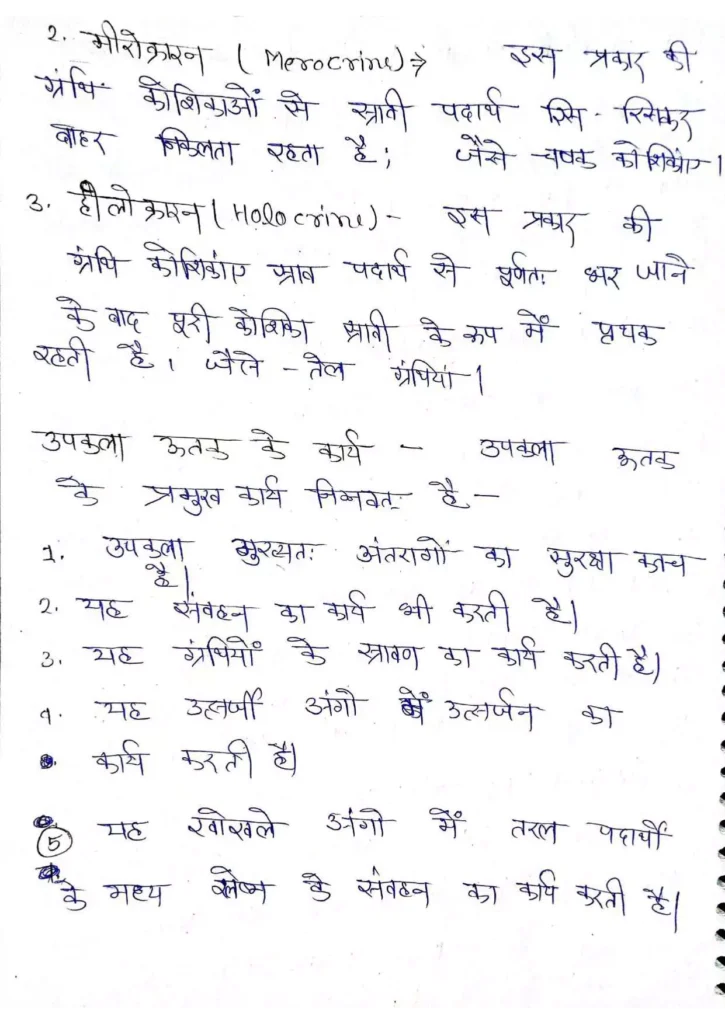 2. मीरोक्राइन ( Merocrine) → इस प्रकार की
ग्रंथि कोशिकाओं से स्रावी पदार्थ रिस - रिसकर
बाहर निकलता रहता है; जैसे - चषक कोशिकांए।
3. होलोक्राइन (Holocrine) - इस प्रकार की
ग्रंथि कोशिकांए स्राव पदार्थ से पूर्णतः भर जाने
के बाद पूरी कोशिका स्रावी के रूप में प्रथक
रहती है। जैसे - तेल ग्रंथियां।
उपकला ऊतक के कार्य - उपकला ऊतक
के प्रमुख कार्य निम्नवत् है -
1. उपकला मुख्यतः अंतरागों का सुरक्षा कवच
है।
2. यह संवहन का कार्य भी करती है।
3. यह ग्रंथियों के स्रावण का कार्य करती है।
4. यह उत्सर्जी अंगो में उत्सर्जन का
कार्य करती है।
5 यह खोखले अंगो में तरल पदार्थों
के मध्य श्लेष्म के संवहन का कार्य करती है।